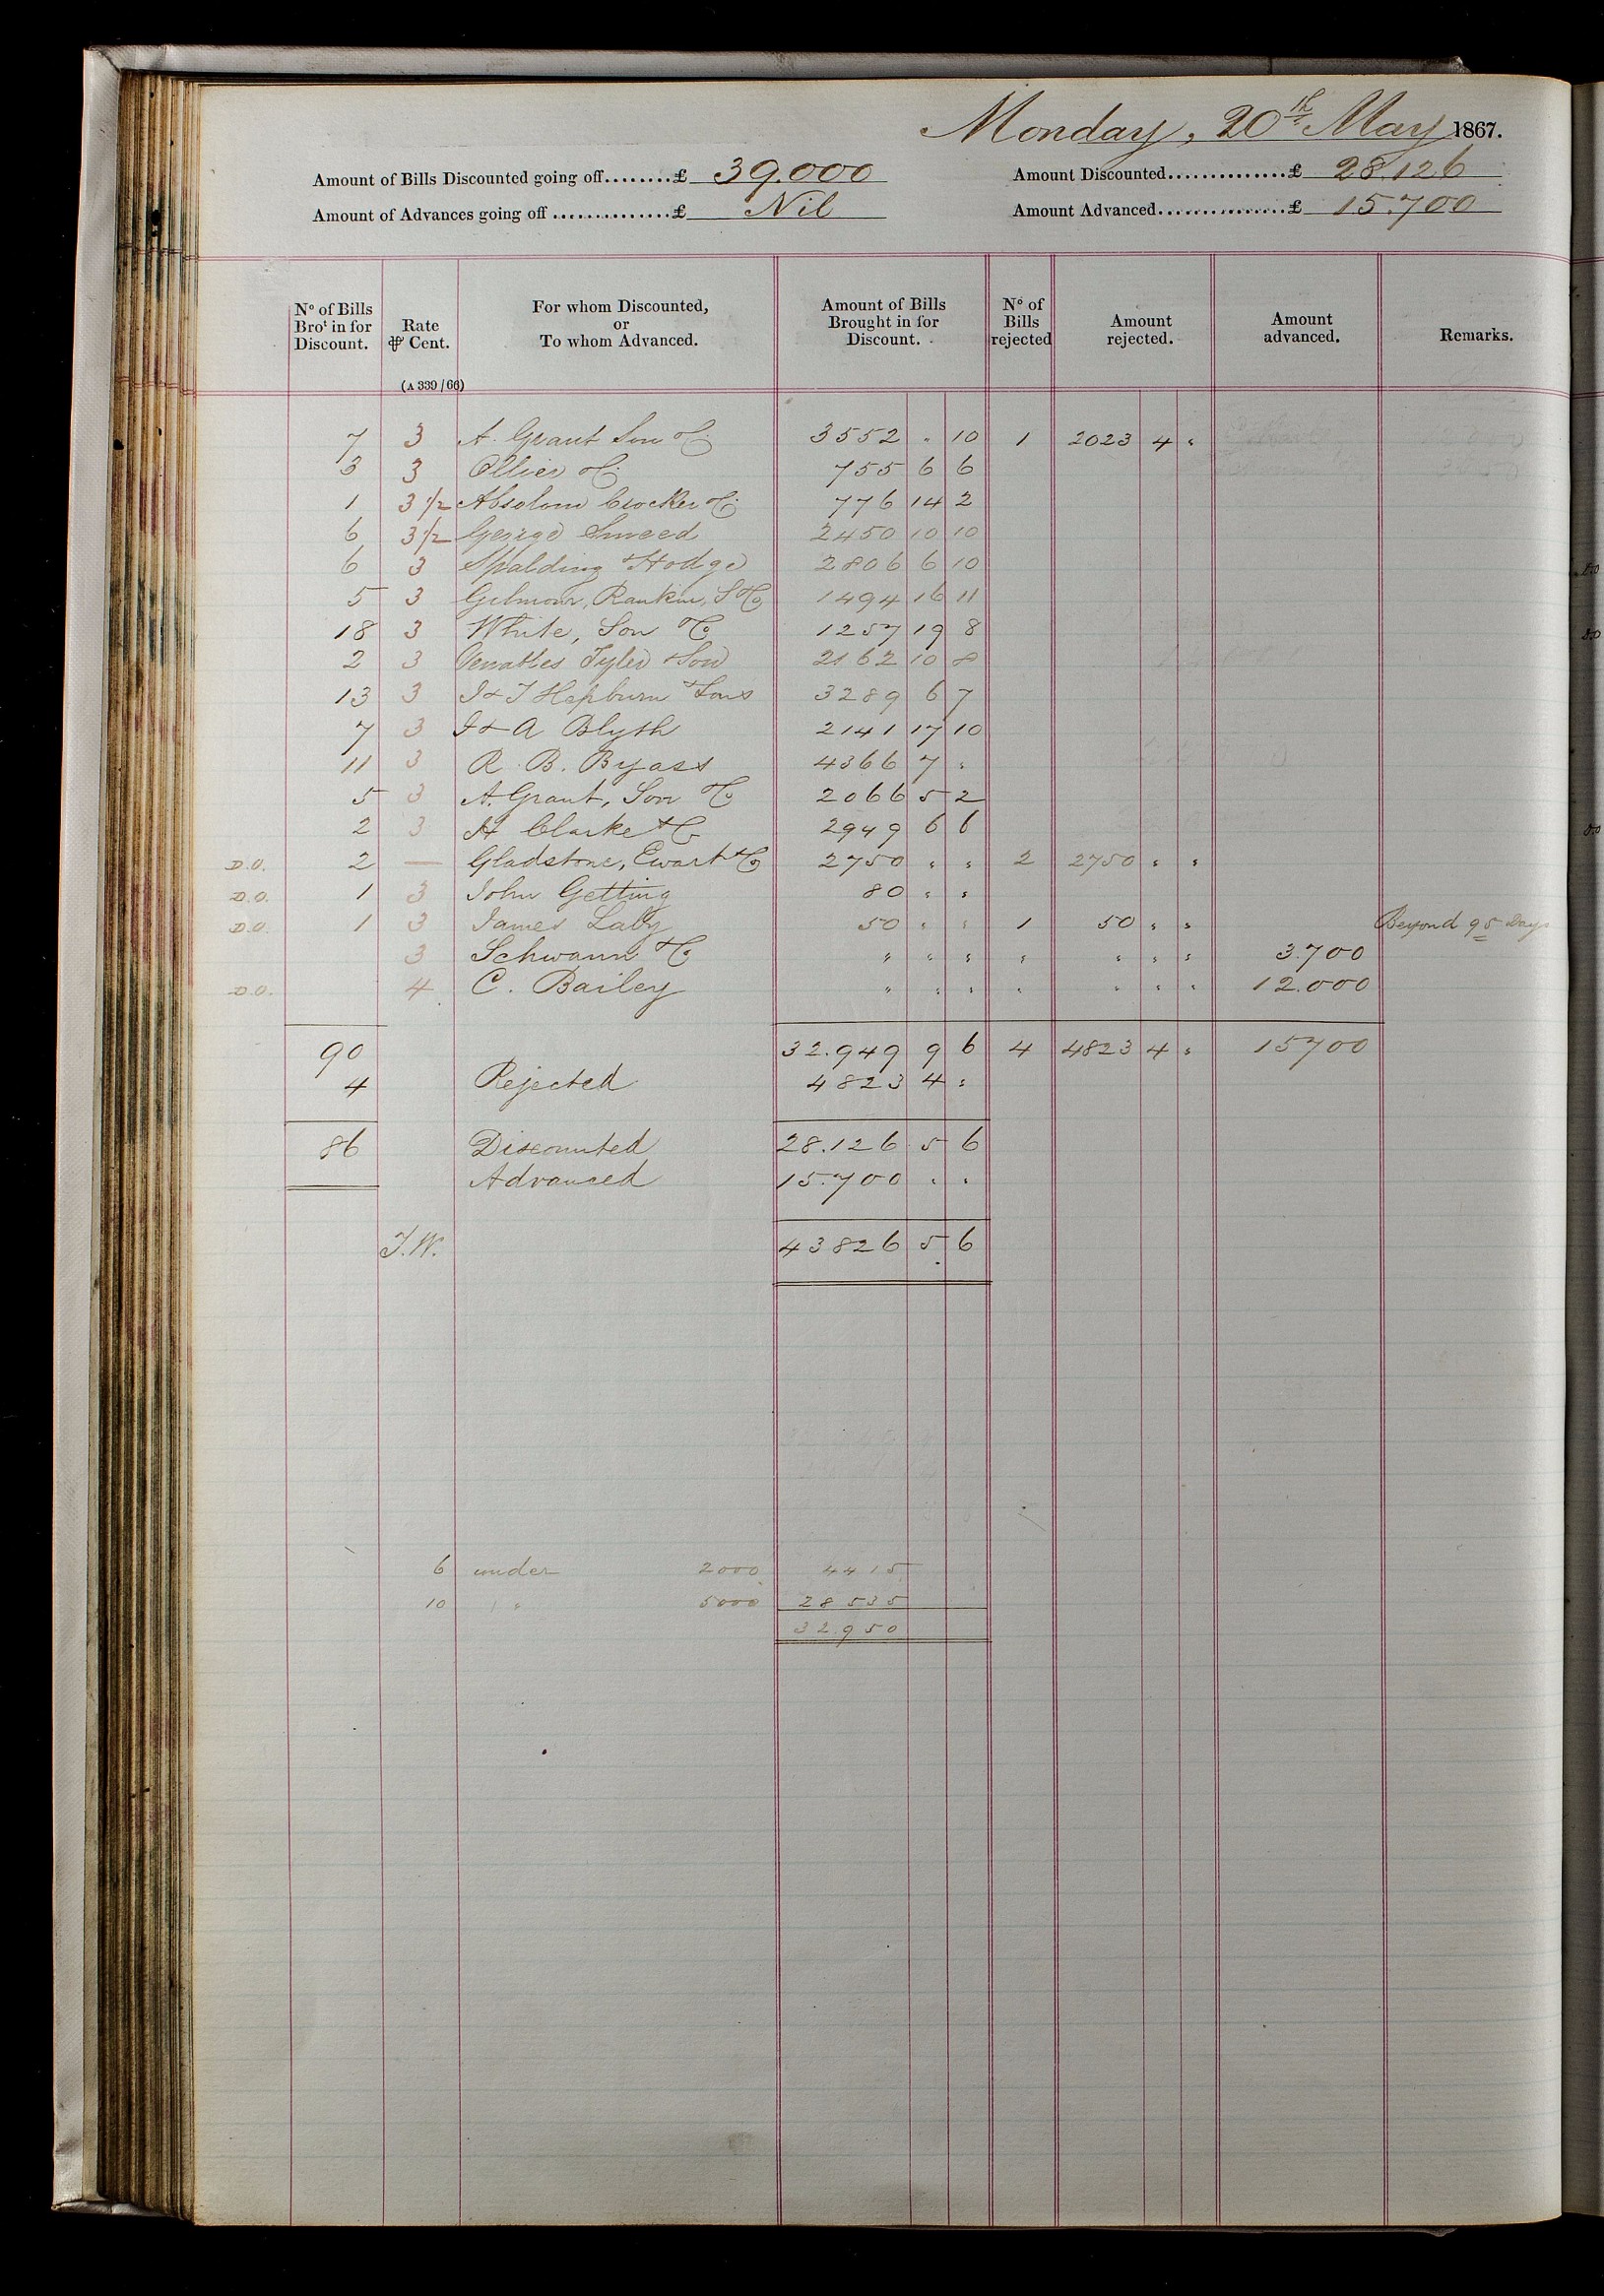 Monday, 20th May 1867.
Amount of Bills Discounted going off........£ 39.000 Amount Discounted..............£ 28.126
Amount of Advances going off..............£ Nil Amount Advanced...............£ 15.700
No of Bills Brot in for Discount. Rate ⅌ Cent. (A 339/66) For whom Discounted, or To whom Advanced. Amount of Bills Brought in for Discount. No of Bills rejected Amount rejected. Amount advanced. Remarks.
7 3 A. Grant Son & Co 3552 " 10 1 2023 4 "
3 3 Ollier & Co 755 6 6
1 3 1/2 Absolom Crocker & Co 776 14 2
6 3 1/2 George Smeed 2450 10 10
6 3 Spalding & Hodge 2806 6 10
5 3 Gilmour, Rankin, S & Co 1494 16 11
18 3 White, Son & Co 1257 19 8
2 3 Venables Tyler & Son 2162 10 8
13 3 J & T Hepburn & Sons 3289 6 7
7 3 J & A Blyth 2141 17 10
11 3 R. B. Byass 4366 7 "
5 3 A. Grant, Son & Co 2066 5 2
2 3 H Clarke & Co 2949 6 6
D.O. 2 — Gladstone, Ewart & Co 2750 " " 2 2750 " "
D.O. 1 3 John Getting 80 " "
D.O. 1 3 James 50 " " 1 50 " " Beyond 95 Days
3 Schwann & Co " " " " " " " 3.700
D.O. 4 C. Bailey " " " " " " " 12.000
90 32.949 9 6 4 4823 4 " 15700
4 Rejected 4823 4 "
86 Discounted 28.126 5 6
Advanced 15.700 " "
J.W. 43826 5 6
6 under 2000 4415
10 " " 5000 28535
32.950